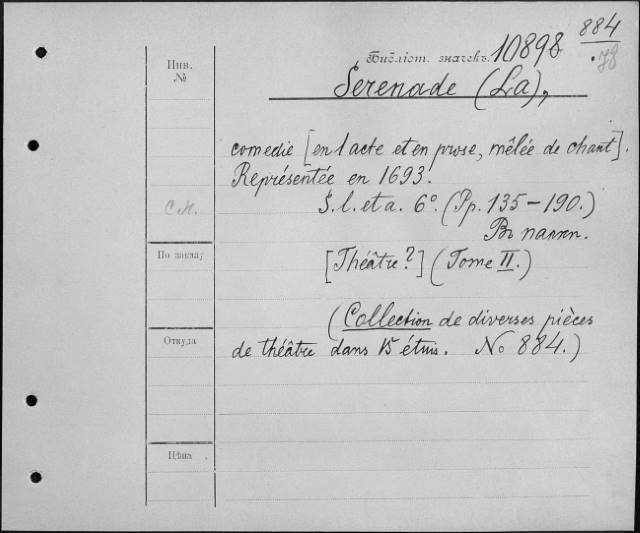 884
Инв. №
Библіот. значекъ 10898
78
Serenade (La),
comedie [en 1 acte et en prose, mêlée de chant].
Représentée en 1693.
S. l. et a. 6º. (Pp. 135-190.)
Въ папкѣ.
С.Н.
По заказу
[Théâtre?] (Tome II.)
(Collection de diverses pièces
Откуда
de théâtre dans 15 étuis. No 884.)
Цѣна